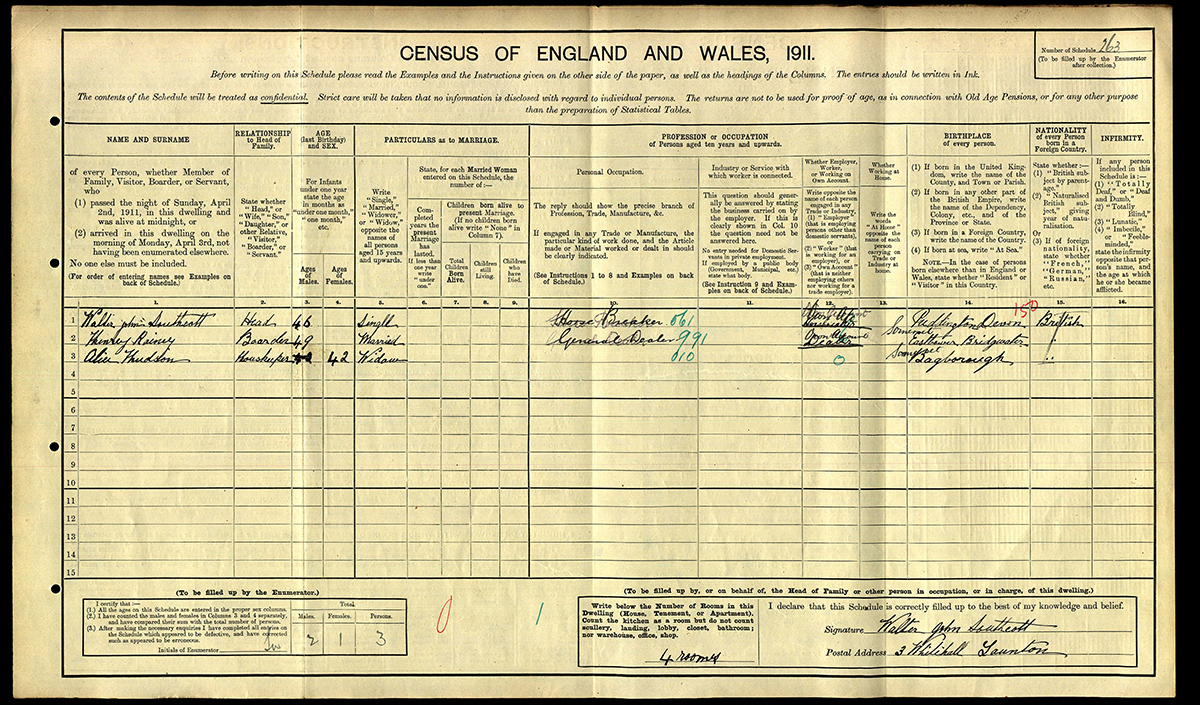 CENSUS OF ENGLAND AND WALES, 1911.
Number of Schedule 263
(To be filled up by the Enumerator
after collection.)
Before writing on this Schedule please read the Examples and the Instructions given on the other side of the paper, as well as the headings of the Columns. The entries should be written in Ink.
The contents of the Schedule will be treated as confidential. Strict care will be taken that no information is disclosed with regard to individual persons. The returns are not to be used for proof of age, as in connection with Old Age Pensions, or for any other purpose
than the preparation of Statistical Tables.
NAME AND SURNAME
of every Person, whether Member of
Family, Visitor, Boarder, or Servant,
who
(1) passed the night of Sunday, April
2nd, 1911, in this dwelling and
was alive at midnight, or
(2) arrived in this dwelling on the
morning of Monday, April 3rd, not
having been enumerated elsewhere.
No one else must be included.
(For order of entering names see Examples on
back of Schedule.)
RELATIONSHIP
to Head of
Family.
State whether
"Head," or
"Wife," "Son,"
"Daughter," or
other Relative,
"Visitor,"
"Boarder," or
"Servant."
AGE
(last Birthday)
and SEX.
For Infants
under one year
state the age
in months as
"under one month,"
"one month,"
etc.
Ages
of
Males.
Ages
of
Females.
PARTICULARS as to MARRIAGE.
Write
"Single,"
"Married,"
"Widower,"
or "Widow,"
opposite the
names of
all persons
aged 15 years
and upwards.
State, for each Married Woman
entered on this Schedule, the
number of :—
Completed
years the
present
Marriage
has
lasted.
If less than
one year
write
"under
one."
Children born alive to
present Marriage.
(If no children born
alive write "None" in
Column 7).
Total
Children
Born
Alive.
Children
still
Living.
Children
who
have
Died.
PROFESSION or OCCUPATION
of Persons aged ten years and upwards.
Personal Occupation.
The reply should show the precise branch of
Profession, Trade, Manufacture, &c.
If engaged in any Trade or Manufacture, the
particular kind of work done, and the Article
made or Material worked or dealt in should
be clearly indicated.
(See Instructions 1 to 8 and Examples on back
of Schedule.)
Industry or Service with
which worker is connected.
This question should generally
be answered by stating
the business carried on by
the employer. If this is
clearly shown in Col. 10
the question need not be
answered here.
No entry needed for Domestic Servants
in private employment.
If employed by a public body
(Government, Municipal, etc.)
state what body.
(See Instruction 9 and Examples
on back of Schedule.)
Whether Employer,
Worker,
or Working on
Own Account.
Write opposite the
name of each person
engaged in any
Trade or Industry,
(1) "Employer"
(that is employing
persons other than
domestic servants),
or
(2) "Worker" (that
is working for an
employer), or
(3) "Own Account"
(that is neither
employing others
nor working for a
trade employer).
Whether
Working at
Home.
Write the
words
"At Home"
opposite the
name of each
person
carrying on
Trade or
Industry at
home.
BIRTHPLACE
of every person.
(1) If born in the United Kingdom,
write the name of the
County, and Town or Parish.
(2) If born in any other part of
the British Empire, write
the name of the Dependency,
Colony, etc., and of the
Province or State.
(3) If born in a Foreign Country,
write the name of the Country.
(4) If born at sea, write "At Sea."
NOTE.—In the case of persons
born elsewhere than in England or
Wales, state whether "Resident" or
"Visitor" in this Country.
NATIONALITY
of every Person
born in a
Foreign Country.
State whether :—
(1) "British
subject by
parentage,"
(2) "Naturalised
British subject,"
giving
year of
naturalisation.
Or
(3) If of foreign
nationality,
state whether
"French,"
"German,"
"Russian,"
etc.
INFIRMITY.
If any person
included in this
Schedule is :—
(1) "Totally
Deaf," or "Deaf
and Dumb,"
(2) "Totally
Blind,"
(3) "Lunatic,"
(4) "Imbecile,"
or "Feeble-minded,"
state the infirmity
opposite that person's
name, and
the age at which
he or she became
afflicted.
1. 2. 3. 4. 5. 6. 7. 8. 9. 10. 11. 12. 13. 14. 15. 16.
1 Walter John Southcott Head 46 Single Horse 061 Devon 150 British
2 Henry Rainey Boarder 49 Married General Dealer 991 Somerset Bridgwater "
3 Alice Hudson Housekeeper 42 Widow 010 0 Somerset Bagborough "
4
5
6
7
8
9
10
11
12
13
14
15
(To be filled up by the Enumerator.)
I certify that :—
(1.) All the ages on this Schedule are entered in the proper sex columns.
(2.) I have counted the males and females in Columns 3 and 4 separately,
and have compared their sum with the total number of persons.
(3.) After making the necessary enquiries I have completed all entries on
the Schedule which appeared to be defective, and have corrected
such as appeared to be erroneous.
Initials of Enumerator
Total.
Males. Females. Persons.
2 1 3
0 1
(To be filled up by, or on behalf of, the Head of Family or other person in occupation, or in charge, of this dwelling.)
Write below the Number of Rooms in this
Dwelling (House, Tenement, or Apartment).
Count the kitchen as a room but do not count
scullery, landing, lobby, closet, bathroom;
nor warehouse, office, shop.
4 rooms
I declare that this Schedule is correctly filled up to the best of my knowledge and belief.
Signature Walter John Southcott
Postal Address 3 Whitehall Taunton